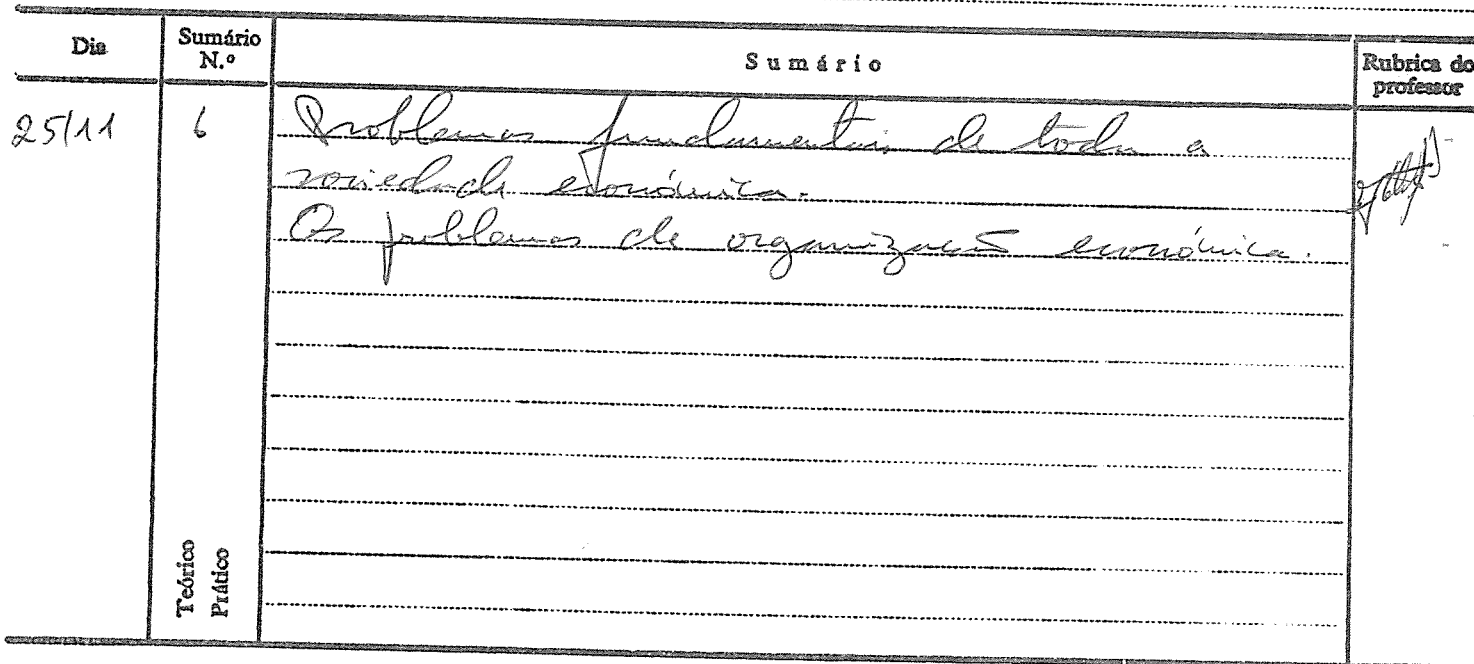 Dia
Sumário N.º
Sumário
Rubrica do professor
25/11
6
Problemas fundamentais de toda a
sociedade económica.
Os problemas de organização económica.
Teórico
Prático